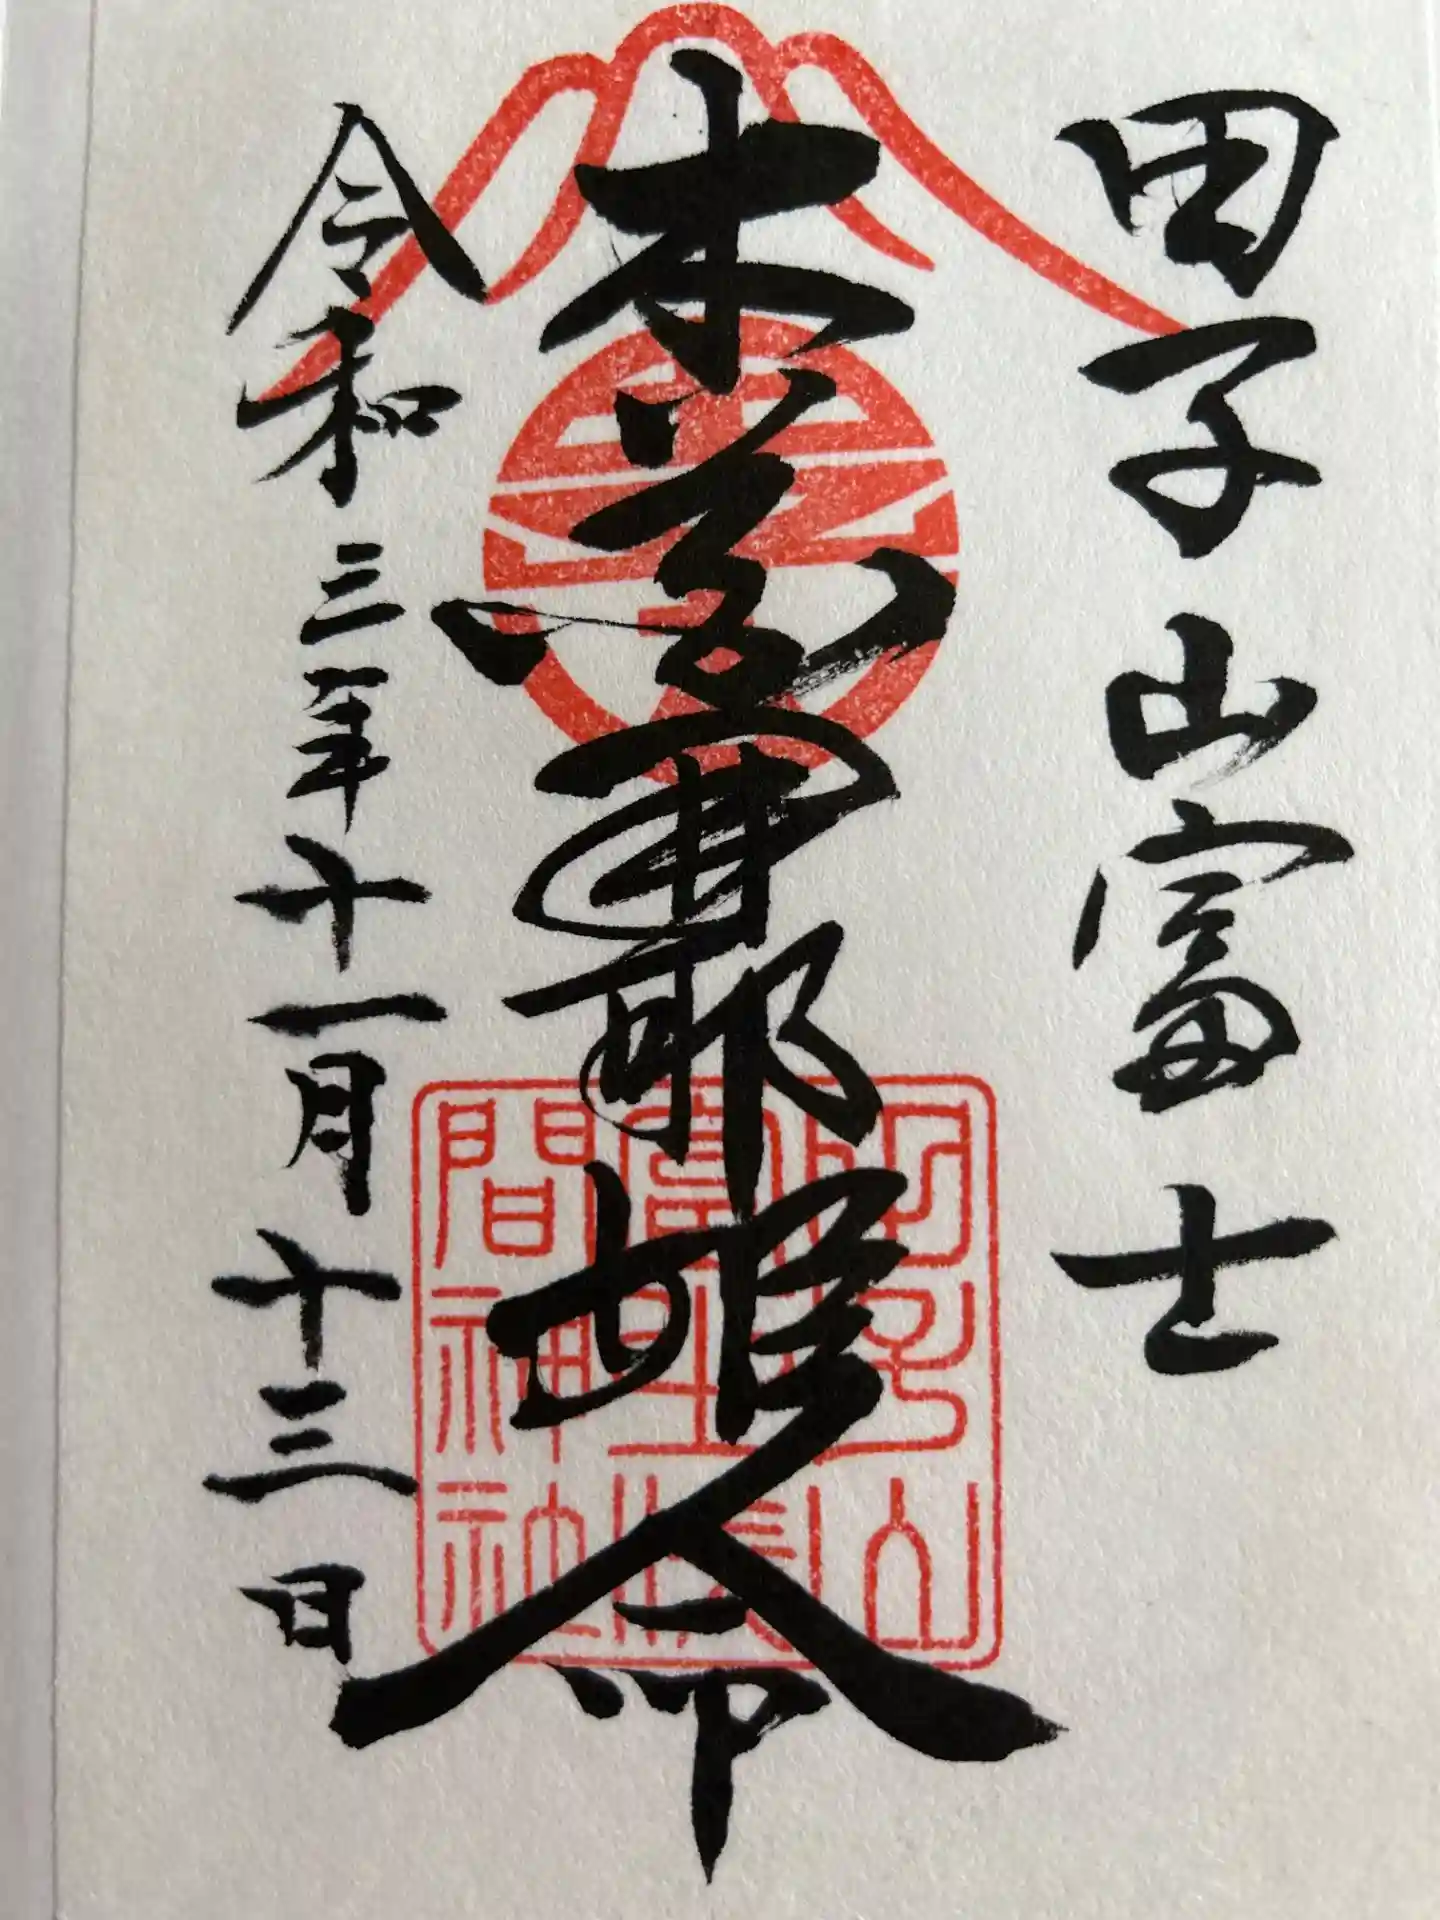 田子山富士
木花開耶姫命
令和三年十一月十三日
田子山
富士浅
間神社